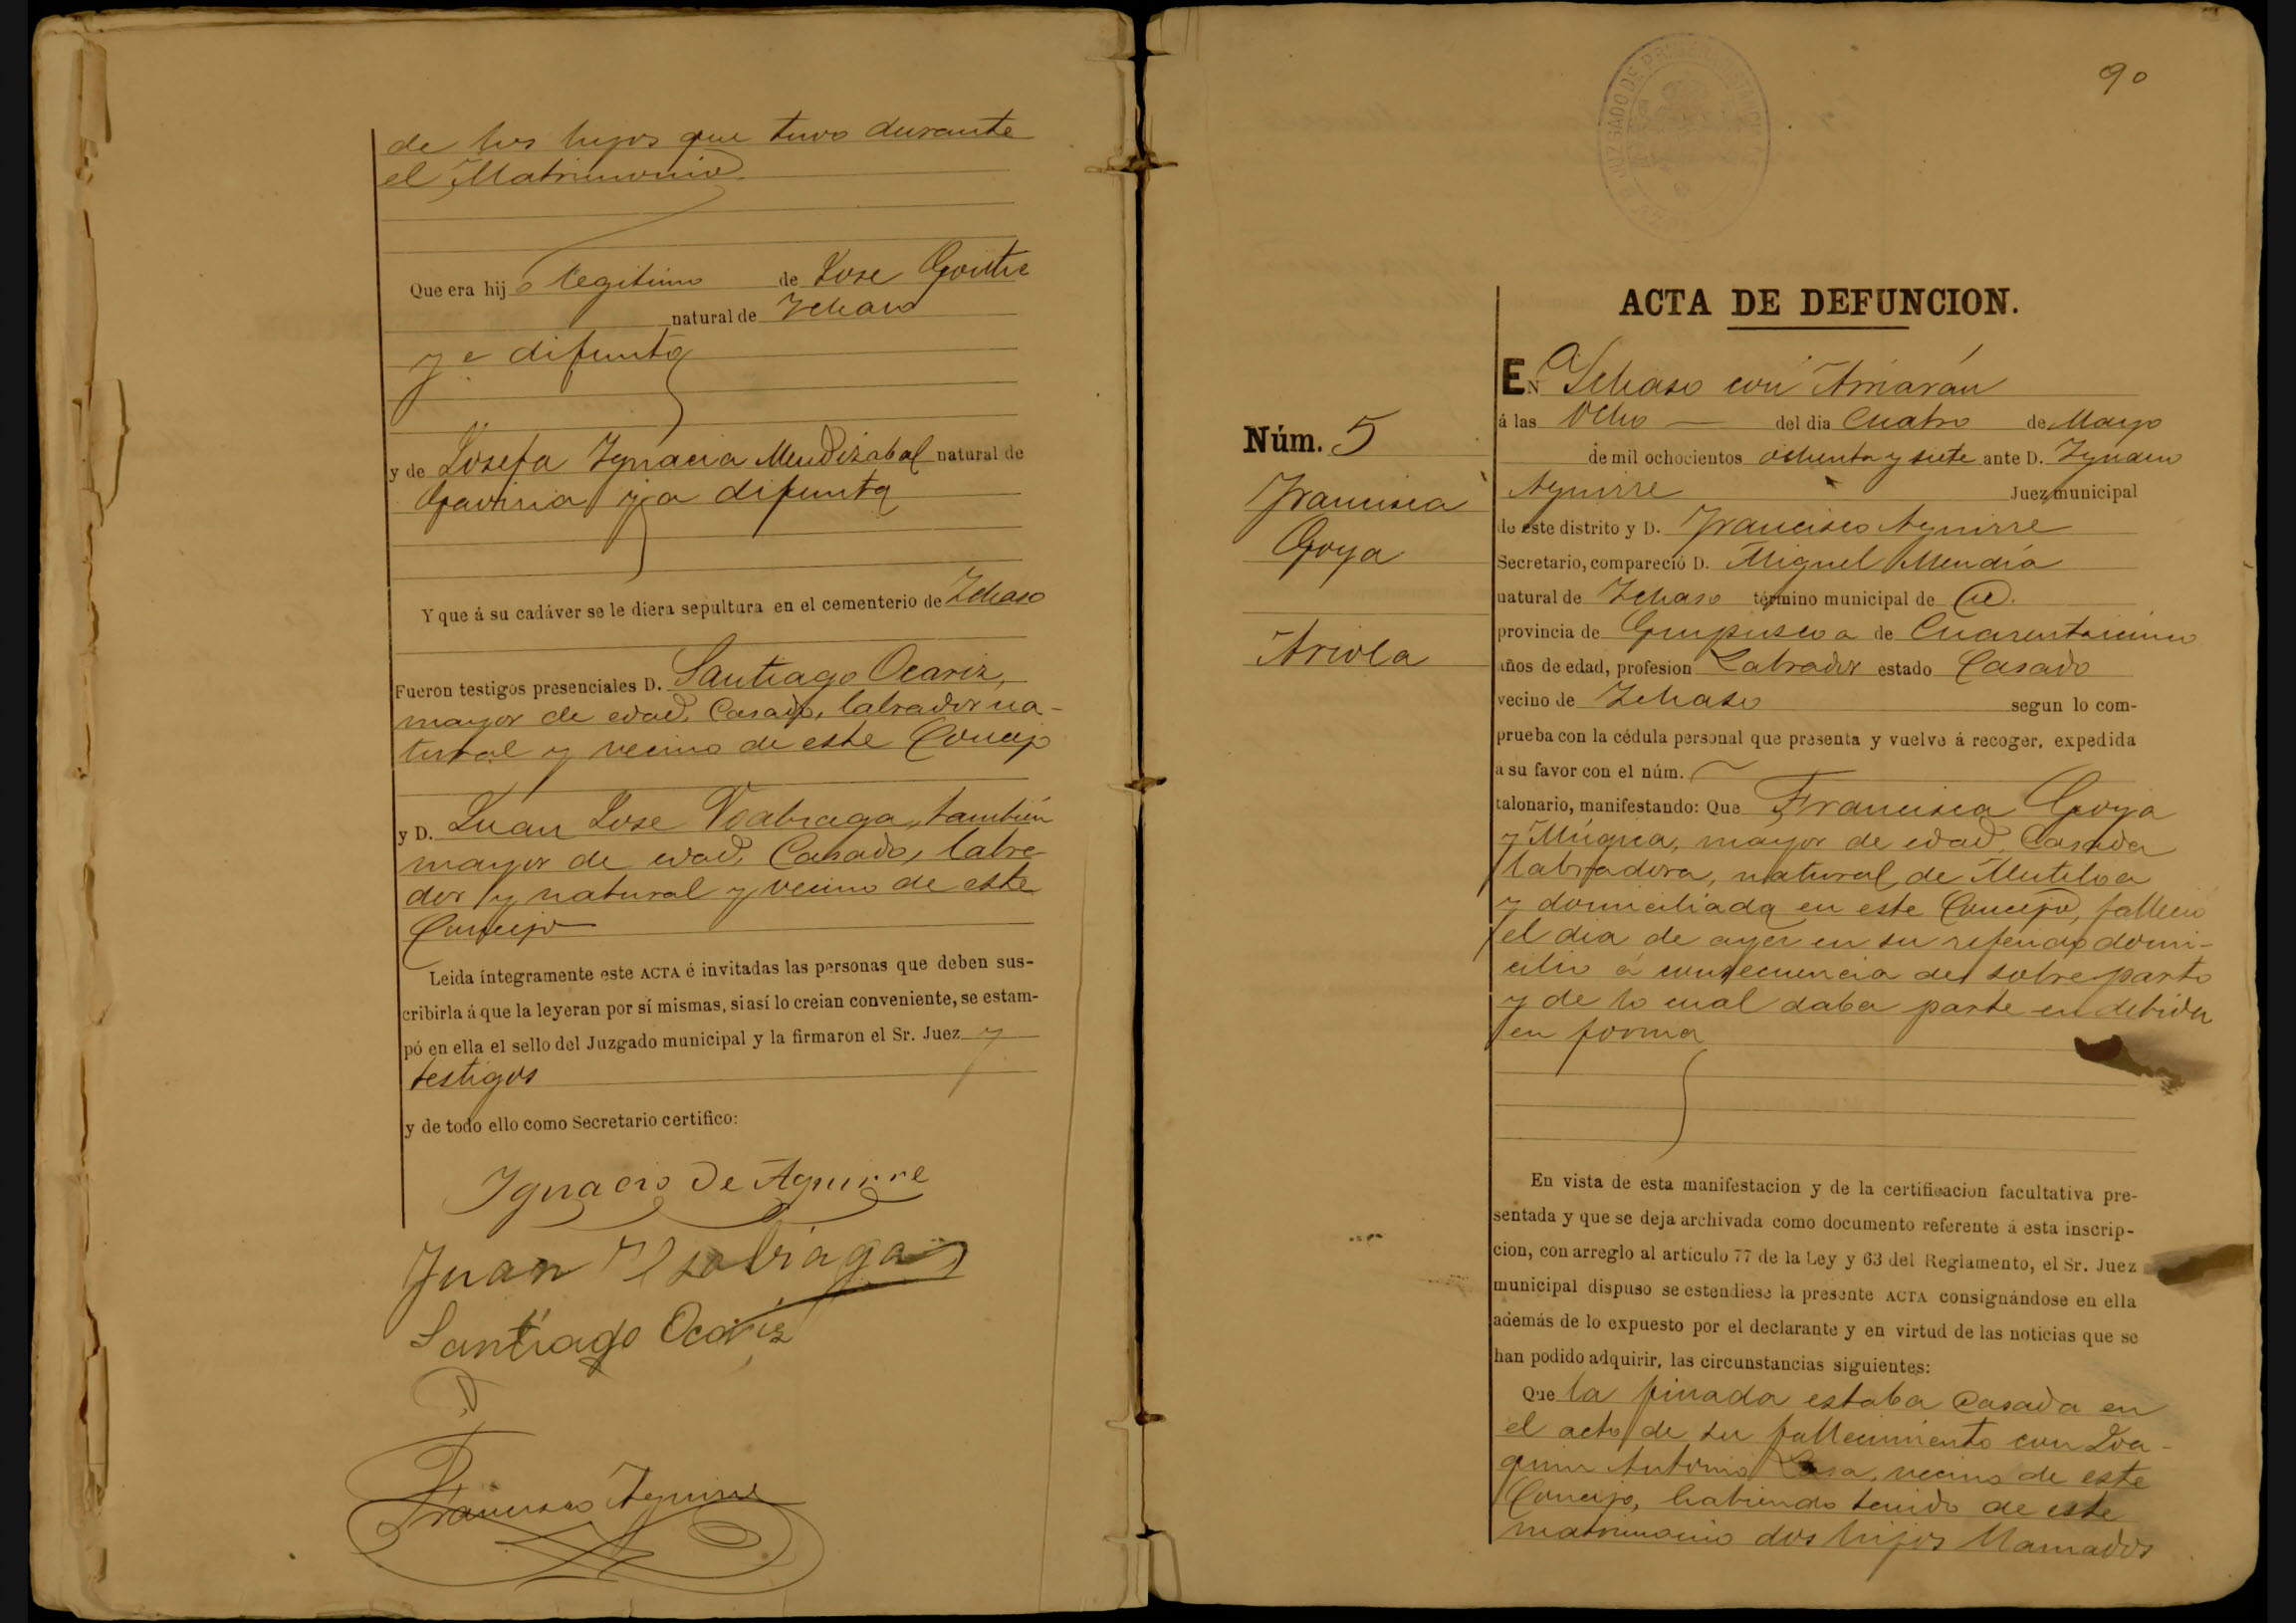 de los hijos que tuvo durante
el Matrimonio
Que era hijo legitimo de Jose Goitia
natural de Ichaso
ya difunto
y de Josefa Ygnacia Mendizabal natural de
Gaviria ya difunta
Y que á su cadáver se le diera sepultura en el cementerio de Ichaso
Fueron testigos presenciales D. Santiago Ocariz,
mayor de edad, Casado, labrador na-
tural y vecino de este Concejo
y D. Juan Jose Ysabiaga, también
mayor de edad, Casado, labra-
dor y natural y vecino de este
Concejo
Leida íntegramente este ACTA é invitadas las personas que deben sus-
cribirla á que la leyeran por sí mismas, si así lo creian conveniente, se estam-
pó en ella el sello del Juzgado municipal y la firmaron el Sr. Juez y
testigos
y de todo ello como Secretario certifico:
Ygnacio De Aguirre
Juan Ysabiaga
Santiago Ocariz
Francisco Aguirre
90
ACTA DE DEFUNCION.
Núm. 5
Francisca
Goya
Ariola
EN Ichaso con Arriarán
á las Ocho del dia Cuatro de Mayo
de mil ochocientos ochenta y siete ante D. Ygnacio
Aguirre Juez municipal
de este distrito y D. Francisco Aguirre
Secretario, compareció D. Miguel Mendía
natural de Ichaso término municipal de
provincia de Guipuscoa de Cuarenta cinco
años de edad, profesion Labrador estado Casado
vecino de Ichaso segun lo com-
prueba con la cédula personal que presenta y vuelve á recoger, expedida
a su favor con el núm.
talonario, manifestando: Que Francisca Goya
y Múgica, mayor de edad, Casada
labradora, natural de Mutiloa
y domiciliada en este Concejo, falleció
el dia de ayer en su referido domi-
cilio á consecuencia del sobreparto
y de lo cual daba parte en debida
en forma
En vista de esta manifestacion y de la certificacion facultativa pre-
sentada y que se deja archivada como documento referente á esta inscrip-
cion, con arreglo al artículo 77 de la Ley y 63 del Reglamento, el Sr. Juez
municipal dispuso se estendiese la presente ACTA consignándose en ella
además de lo expuesto por el declarante y en virtud de las noticias que se
han podido adquirir, las circunstancias siguientes:
Que la finada estaba Casada en
el acto de su fallecimiento con Joa-
quin Antonio vecino de este
Concejo, habiendo tenido de este
matrimonio dos hijos llamados